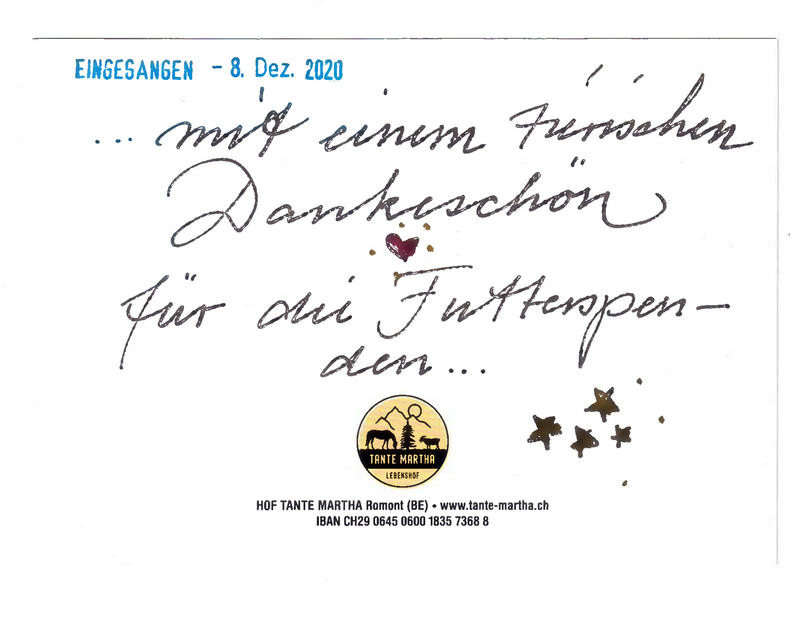 EINGESANGEN - 8. Dez. 2020
... mit einem tierischen
Dankeschön
für die Futterspen-
den...
TANTE MARTHA
LEBENSHOF
HOF TANTE MARTHA Romont (BE) • www.tante-martha.ch
IBAN CH29 0645 0600 1835 7368 8